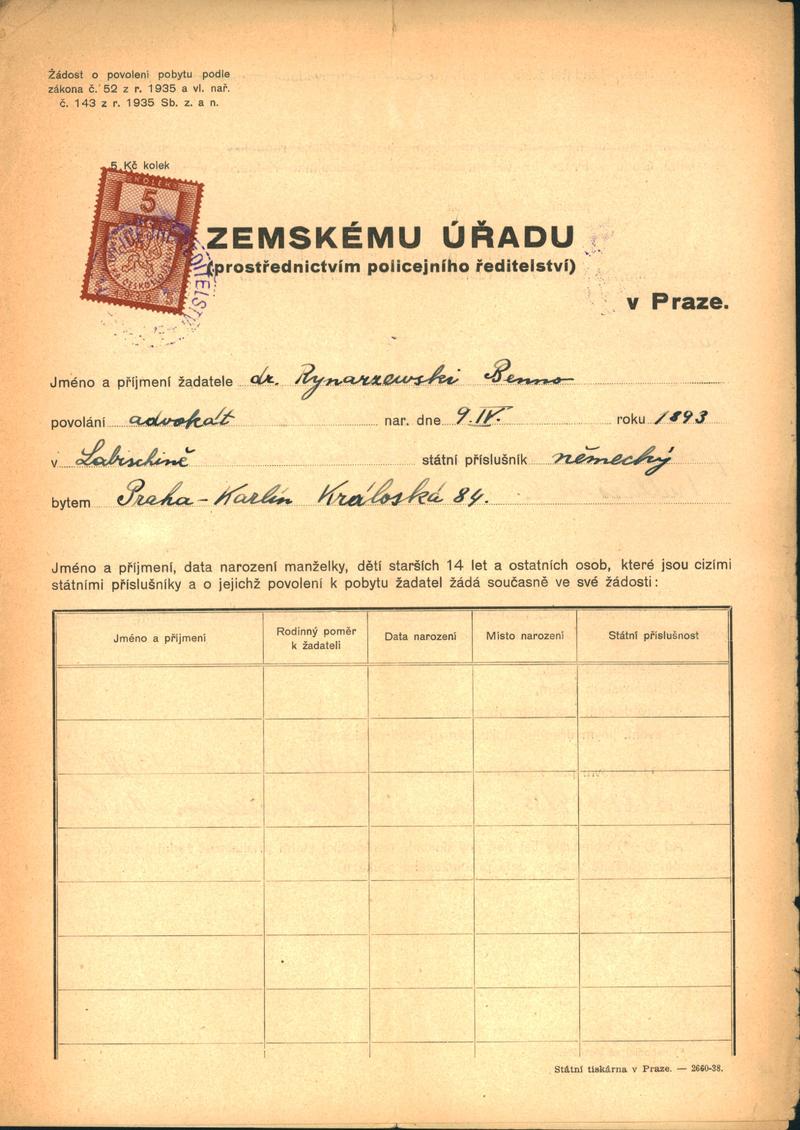 Žádost o povolení pobytu podle
zákona č. 52 z r. 1935 a vl. nař.
č. 143 z r. 1935 Sb. z. a n.
5 Kč kolek
KOLEK
5
ZEMSKÉMU ÚŘADU
(prostřednictvím policejního ředitelství)
v Praze.
Jméno a příjmení žadatele dr. Rynarzewski Benno
povolání advokát nar. dne 9. IV. roku 1893
v Labischině státní příslušník německý
bytem Praha - Karlín Králoská 84.
Jméno a příjmení, data narození manželky, dětí starších 14 let a ostatních osob, které jsou cizími
státními příslušníky a o jejichž povolení k pobytu žadatel žádá současně ve své žádosti:
Jméno a příjmení Rodinný poměr k žadateli Data narození Místo narození Státní příslušnost
Státní tiskárna v Praze. — 2660-38.